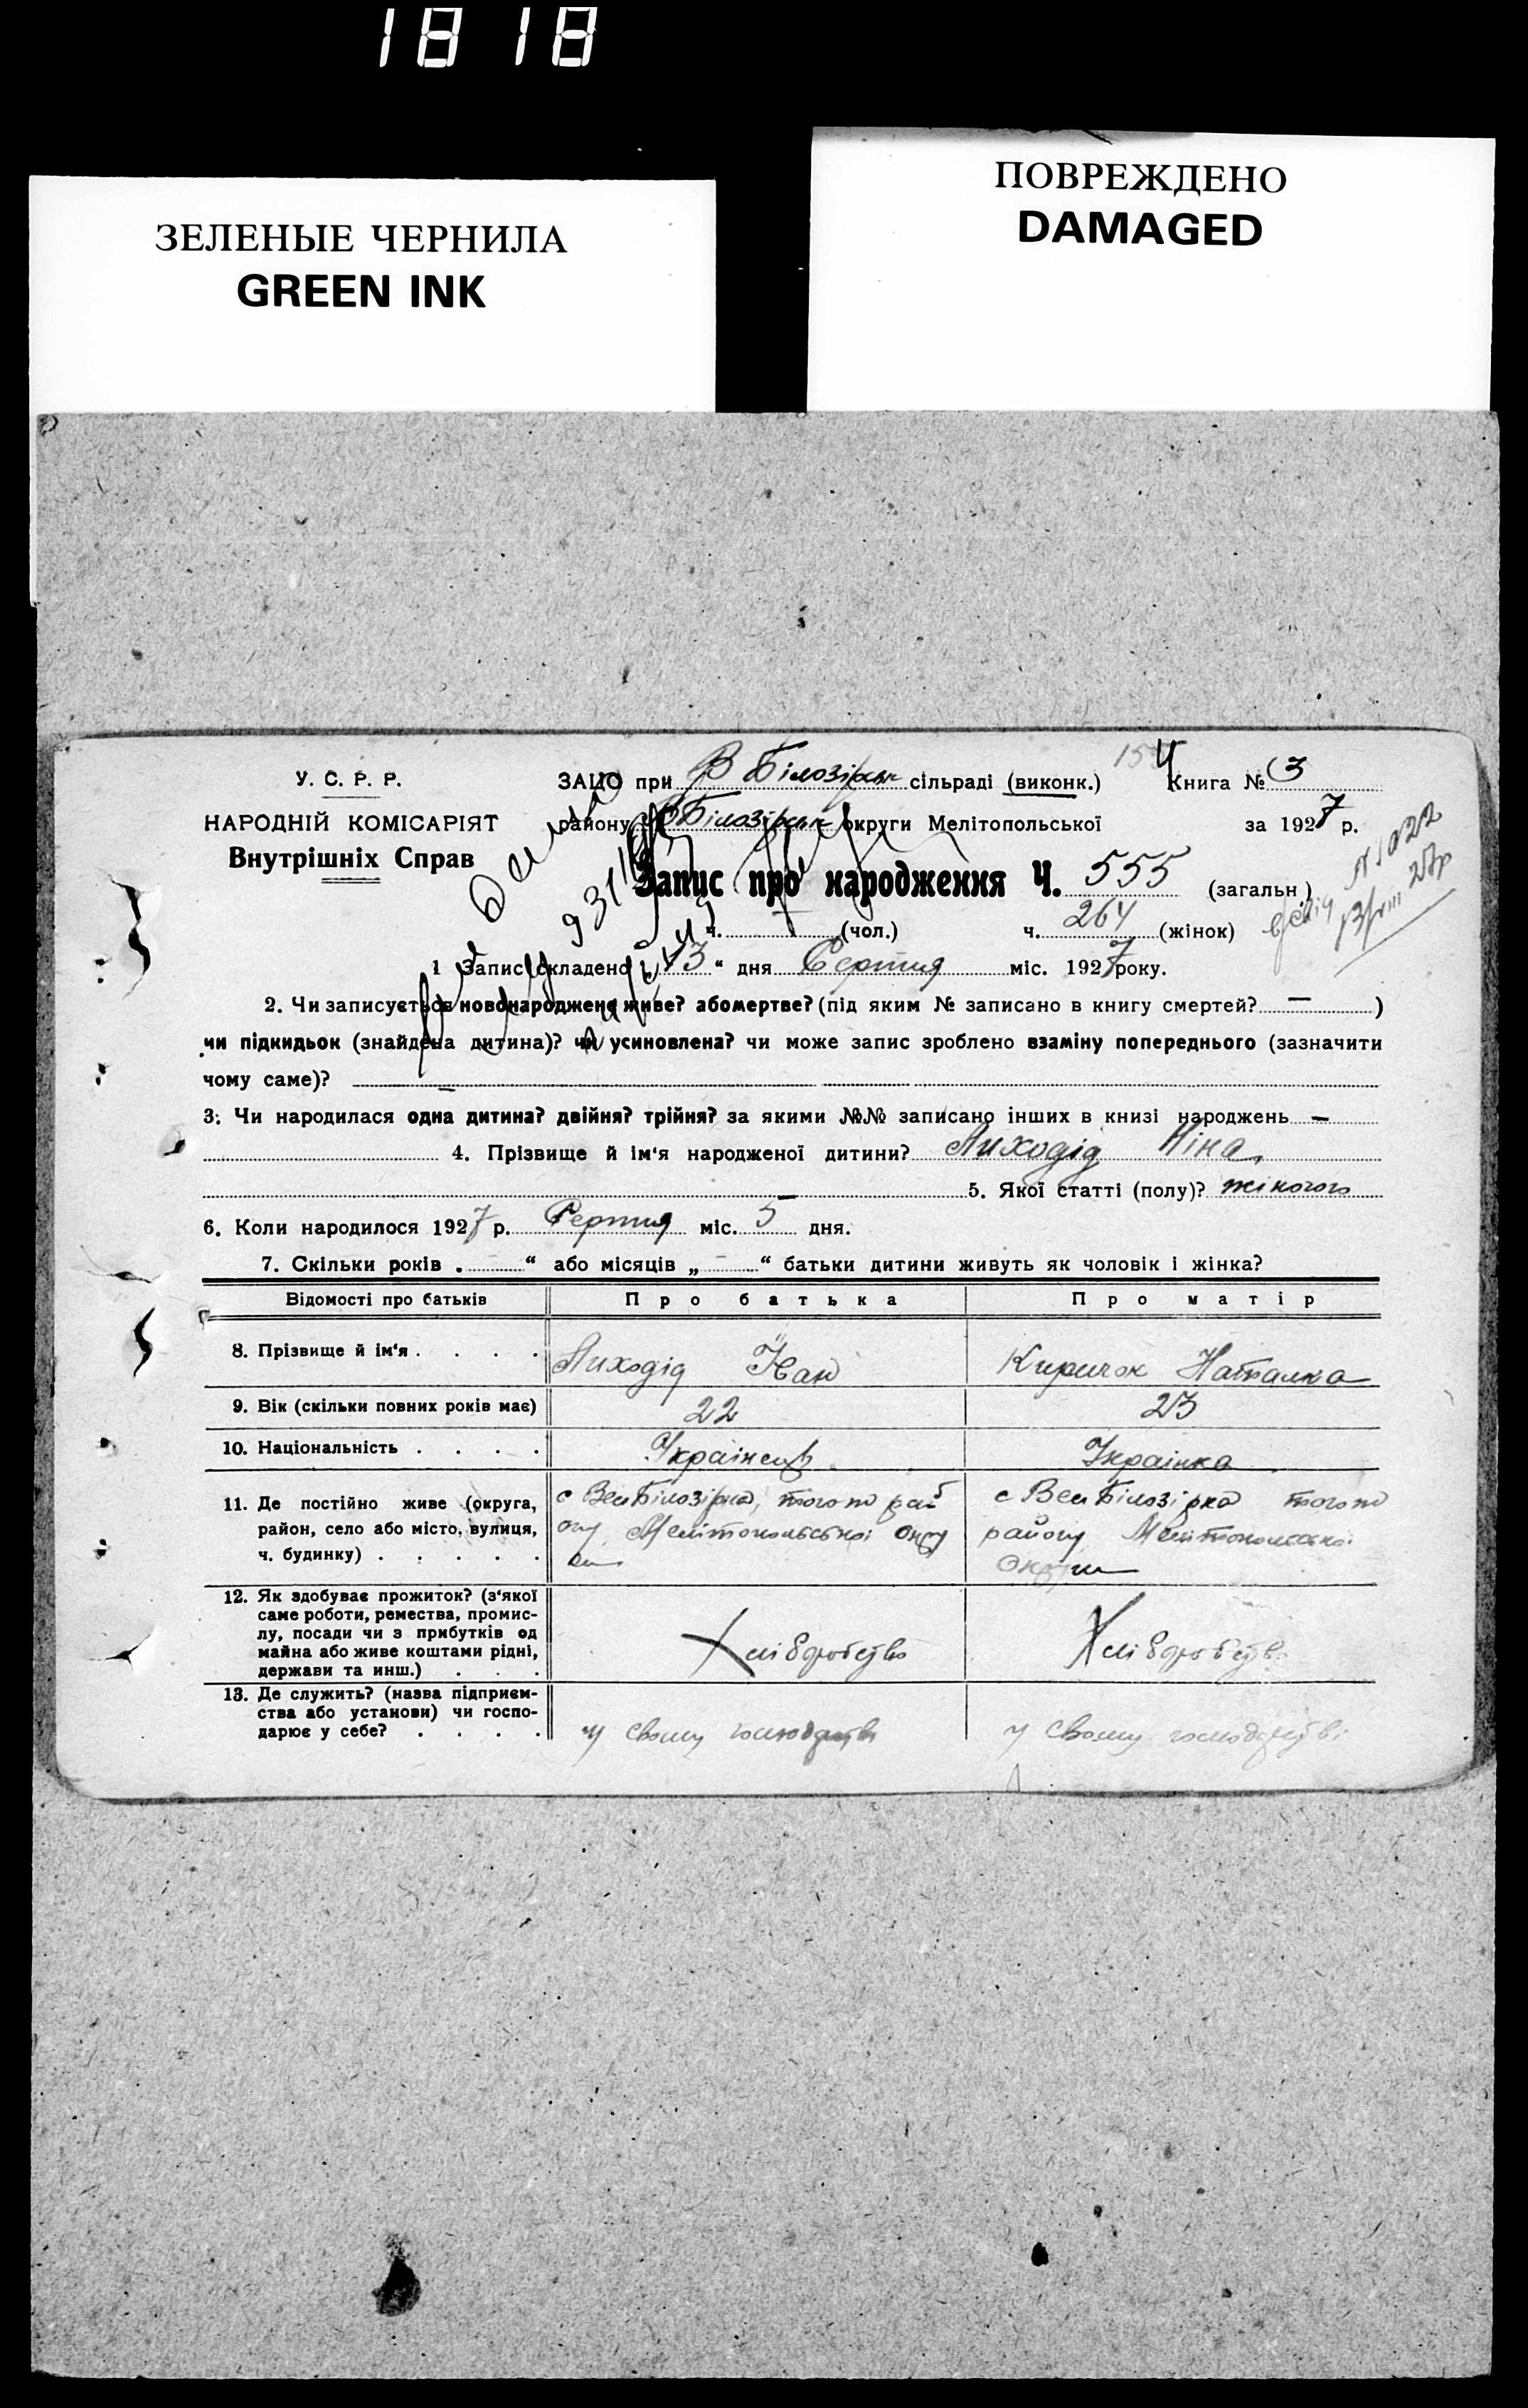 18 18
ПОВРЕЖДЕНО
DAMAGED
ЗЕЛЕНЫЕ ЧЕРНИЛА
GREEN INK
У. С. Р. Р.
НАРОДНІЙ КОМІСАРІЯТ
Внутрішніх Справ
ЗАЦО при В Білозірськ сільраді (виконк.) Книга № 3
району В Білозірськ округи Мелітопольської за 1927 р.
Запис про народження Ч. 555 (загальн.)
ч. (чол.) ч. 264 (жінок)
1 Запис складено „13“ дня Серпня міс. 1927 року.
2. Чи записується новонароджене живе? або мертве? (під яким № записано в книгу смертей? — )
чи підкидьок (знайдена дитина)? чи усиновлена? чи може запис зроблено взаміну попереднього (зазначити
чому саме)? —
3. Чи народилася одна дитина? двійня? трійня? за якими №№ записано інших в книзі народжень —
4. Прізвище й ім‘я народженої дитини? Лиходід Ніна
5. Якої статті (полу)? жіночого
6. Коли народилося 1927 р. Серпня міс. 5 дня.
7. Скільки років „ “ або місяців „ — “ батьки дитини живуть як чоловік і жінка?
Відомості про батьків Про батька Про матір
8. Прізвище й ім‘я . . . . Лиходід Іван Киричок Наталка
9. Вік (скільки повних років має) 22 23
10. Національність . . . . Українець Українка
11. Де постійно живе (округа,
район, село або місто, вулиця,
ч. будинку) . . . . .
с Вел Білозірка, того ж рай
ону Мелітопольської округ
с Вел Білозірка того ж
району Мелітопольської
округи
12. Як здобуває прожиток? (з‘якої
саме роботи, ремества, промис-
лу, посади чи з прибутків од
майна або живе коштами рідні,
держави та инш.) . . .
Хліборобство Хліборобств
13. Де служить? (назва підприєм-
ства або установи) чи госпо-
дарює у себе? . . . .
у свому господарстві у свому господарстві